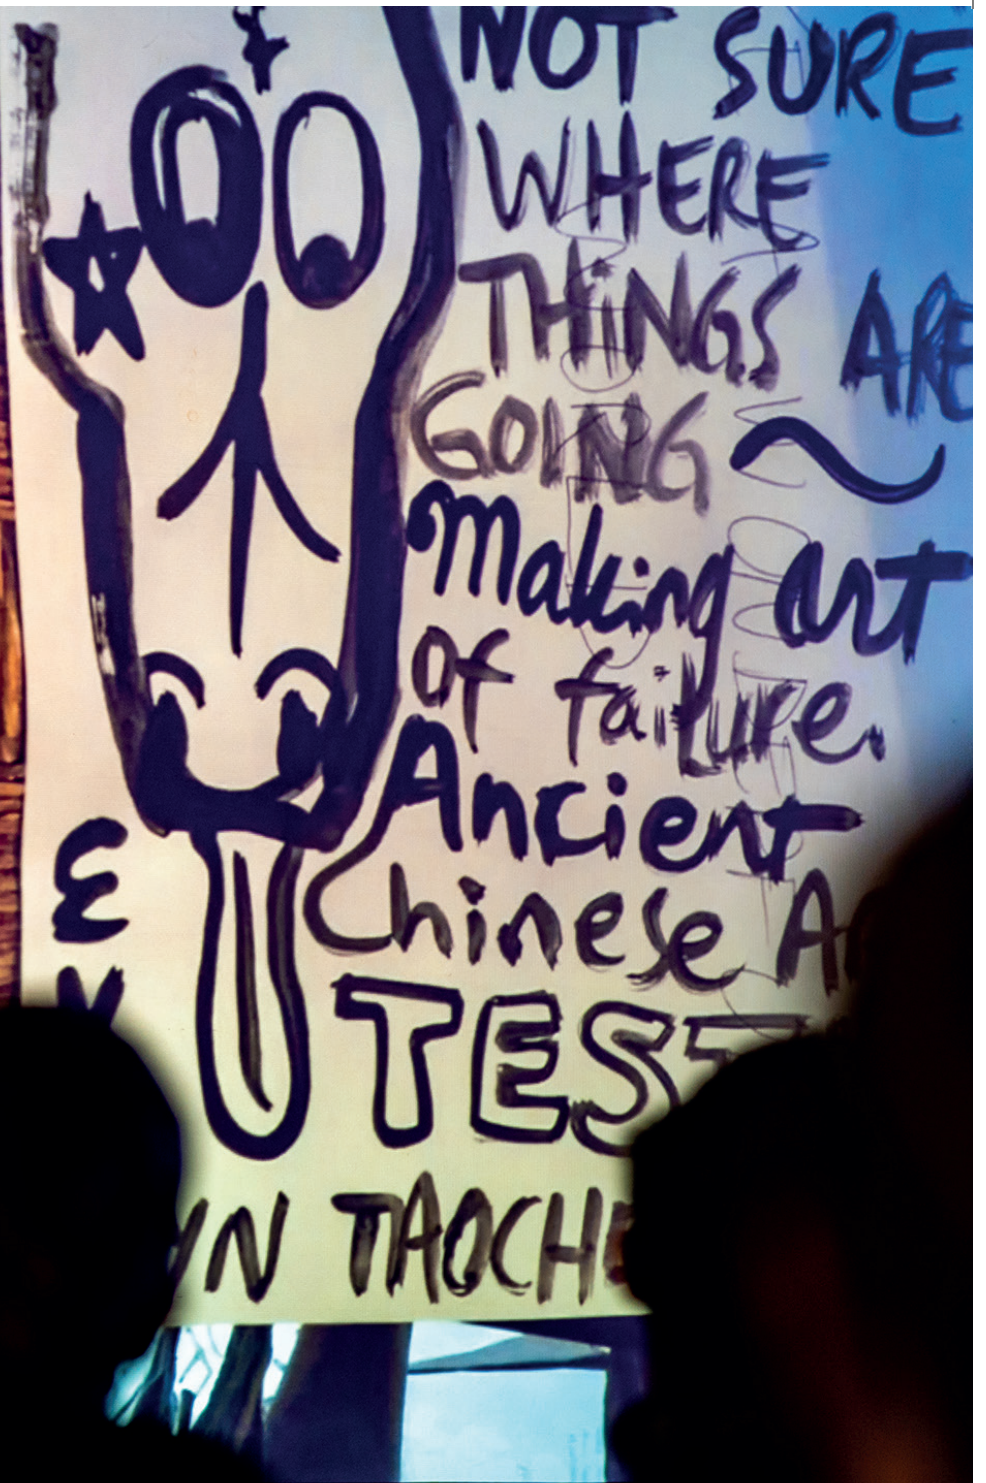 NOT SURE
WHERE
THINGS ARE
GOING ~
Making art
of failure.
Ancient
Chinese
TEST
IN TAOCH